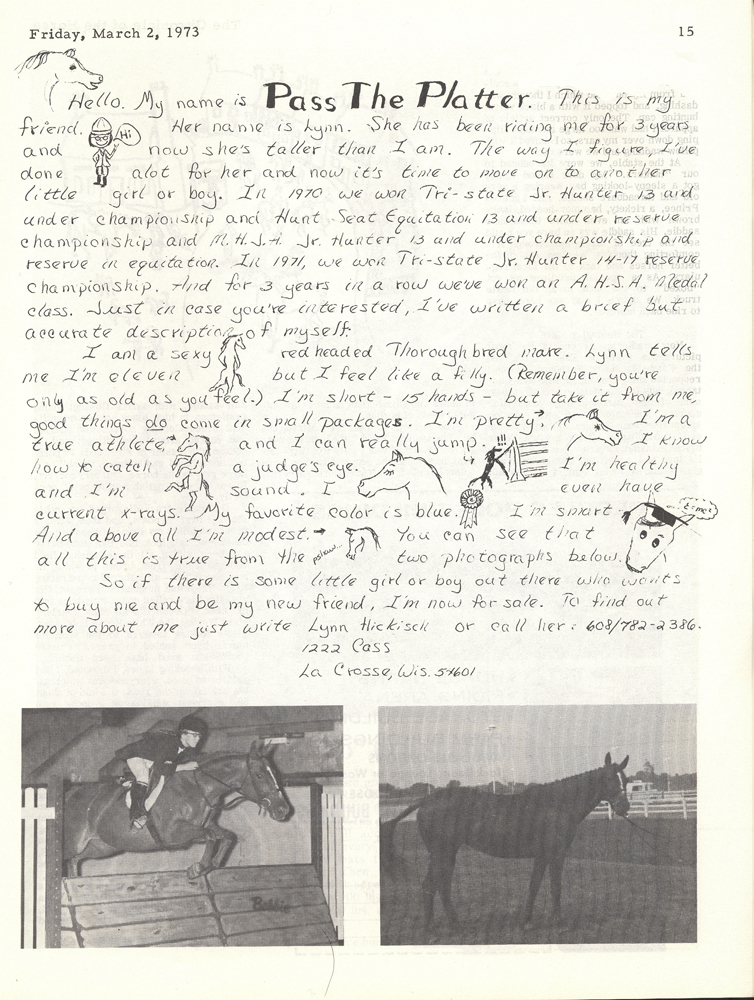 Friday, March 2, 1973 15
Hello. My name is Pass The Platter. This is my
friend. Hi Her name is Lynn. She has been riding me for 3 years
and now she's taller than I am. The way I figure, I've
done alot for her and now it's time to move on to another
little girl or boy. In 1970 we won Tri-state Jr. Hunter 13 and
under championship and Hunt Seat Equitation 13 and under reserve
championship and M.H.J.A. Jr. Hunter 13 and under championship and
reserve in equitation. In 1971, we won Tri-state Jr. Hunter 14-17 reserve
championship. And for 3 years in a row we've won an A.H.S.A. Medal
class. Just in case you're interested, I've written a brief but
accurate description of myself:
I am a sexy red headed Thoroughbred mare. Lynn tells
me I'm eleven but I feel like a filly. (Remember, you're
only as old as you feel.) I'm short - 15 hands - but take it from me,
good things do come in small packages. I'm pretty, I'm a
true athlete, and I can really jump. I know
how to catch a judge's eye. I'm healthy
and I'm sound. I even have
current x-rays. My favorite color is blue. I'm smart
And above all I'm modest. You can see that
all this is true from the pshaw two photographs below.
So if there is some little girl or boy out there who wants
to buy me and be my new friend, I'm now for sale. To find out
more about me just write Lynn Hickisch or call her: 608/782-2386.
1222 Cass
La Crosse, Wis. 54601